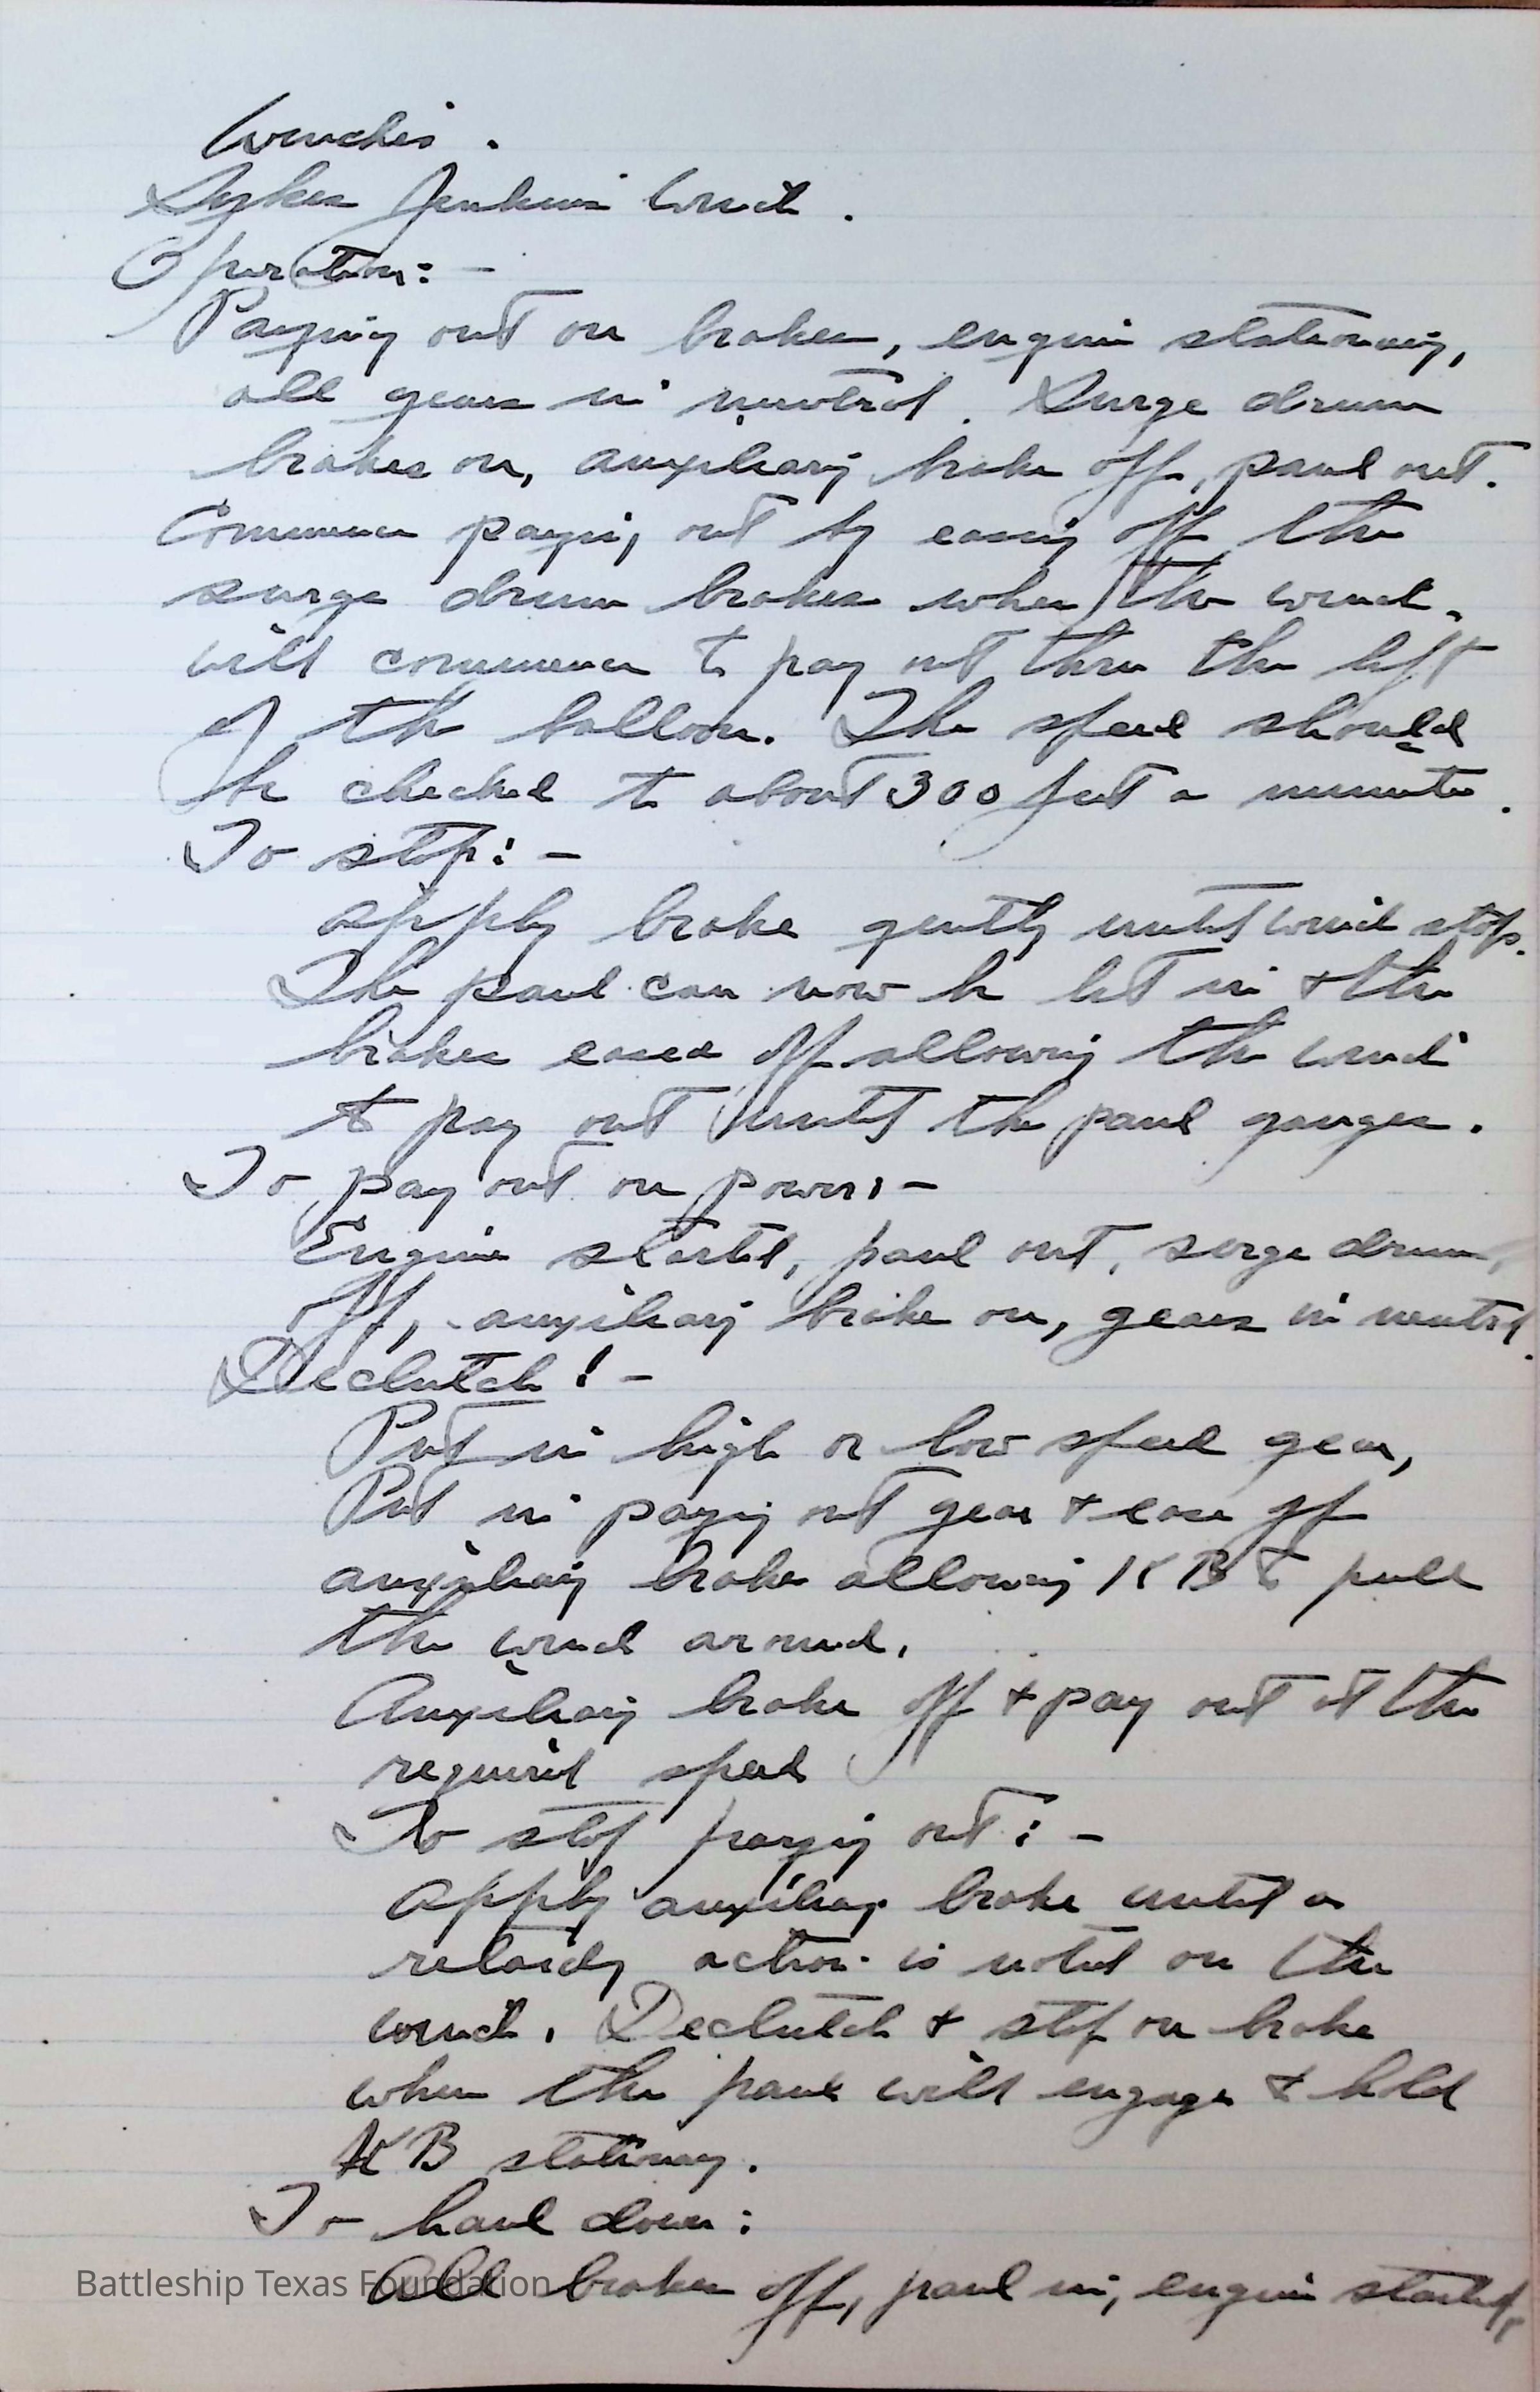 Winches.
Sykes Jenkins Winch.
Operation: -
Paying out on brakes, engine stationary,
all gears in neutral. Surge drum
brakes on, auxiliary brake off, paul out.
Commence paying out by easing off the
surge drum brakes when the winch
will commence to pay out thru the lift
of the balloon. The speed should
be checked to about 300 feet a minute.
To stop: -
apply brake gently until winch stops.
The paul can now be let in & the
brakes eased off allowing the winch
to pay out until the paul gauges.
To pay out on power: -
Engine started, paul out, serge drum
off, auxiliary brake on, gears in neutral.
Declutch! -
Put in high or low speed gear,
Put in paying out gear & ease off
auxiliary brake allowing KB to pull
the winch around.
Auxiliary brake off & pay out at the
required speed
To stop paying out: -
apply auxiliary brake until a
retardy action is noted on the
winch. Declutch & stop on brake
when the paul will engage & hold
KB stationary.
To haul down:
All brakes off, paul in, engine started,
Battleship Texas Foundation